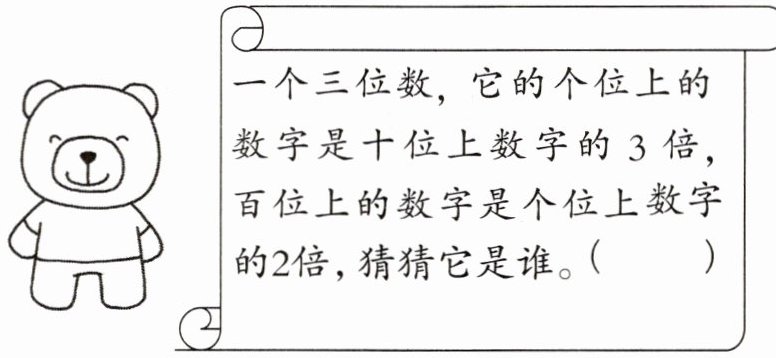 一个三位数，它的个位上的
数字是十位上数字的 3 倍，
百位上的数字是个位上数字
的2倍，猜猜它是谁。（　　）